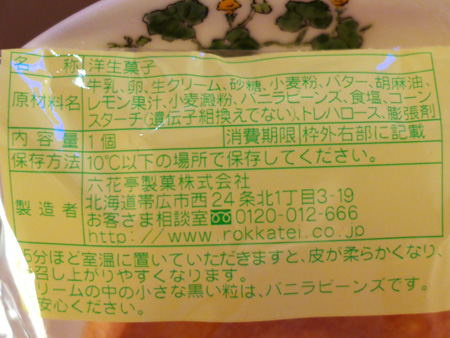 名称 洋生菓子
原材料名 牛乳、卵、生クリーム、砂糖、小麦粉、バター、胡麻油、
レモン果汁、小麦澱粉、バニラビーンズ、食塩、コーン
スターチ(遺伝子組換えてない)、トレハロース、膨張剤
内容量 1個 消費期限 枠外右部に記載
保存方法 10℃以下の場所で保存してください。
製造者 六花亭製菓株式会社
北海道帯広市西24条北1丁目3-19
お客さま相談室 0120-012-666
http://www.rokkatei.co.jp
5分ほど室温に置いていただきますと、皮が柔らかくなり、
召し上がりやすくなります。
リームの中の小さな黒い粒は、バニラビーンズです。
安心ください。